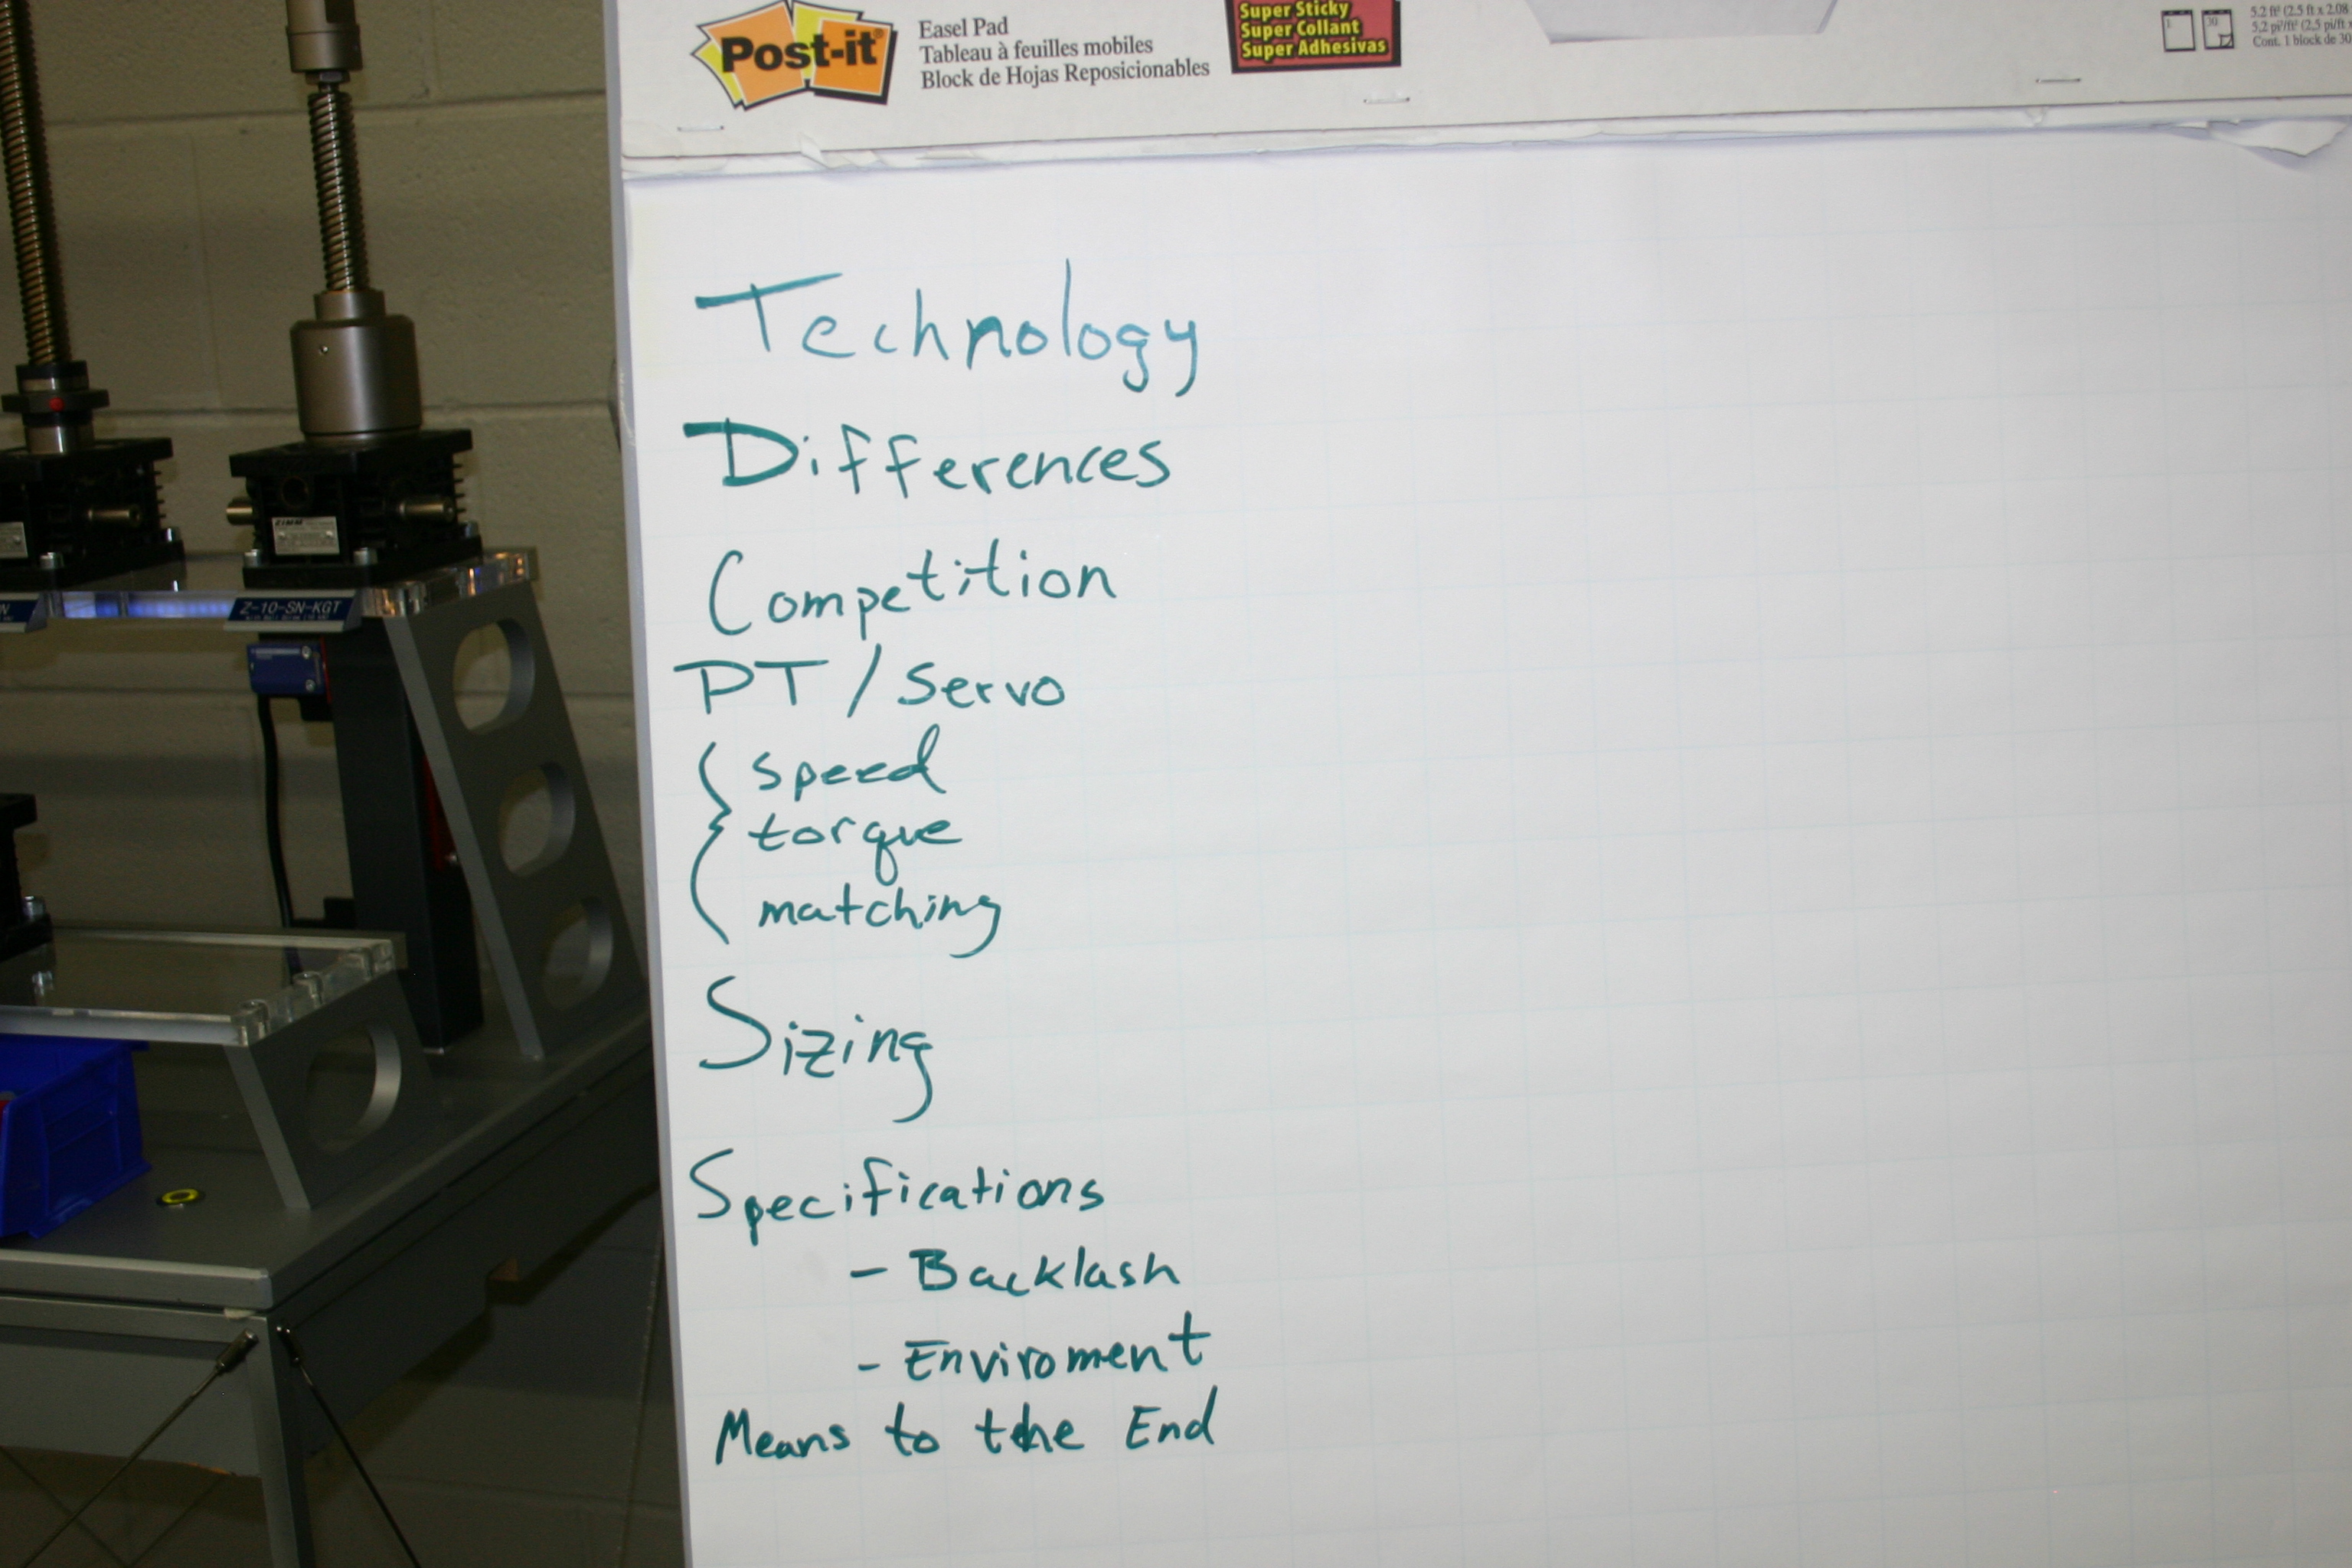 Post-it®
Easel Pad
Tableau à feuilles mobiles
Block de Hojas Reposicionables
Super Sticky
Super Collant
Super Adhesivas
1
30
5.2 ft² (2.5 ft x 2.08
5,2 pi²/ft² (2,5 pi/ft x
Cont. 1 block de 30
Technology
Differences
Competition
PT / Servo
speed
torque
matching
Sizing
Specifications
- Backlash
- Enviroment
Means to the End
ZIMM
Z-10-SN-KGT